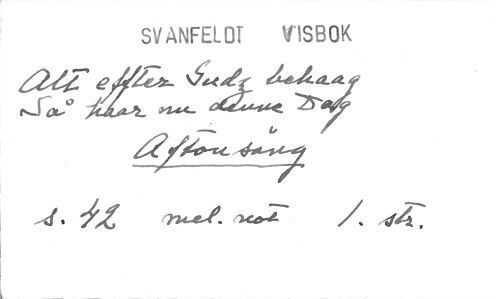 SVANFELDT VISBOK
Alt effter Gudz behaag
Så haar nu denne Dag
Aftonsång
s. 42 mel. not 1. str.